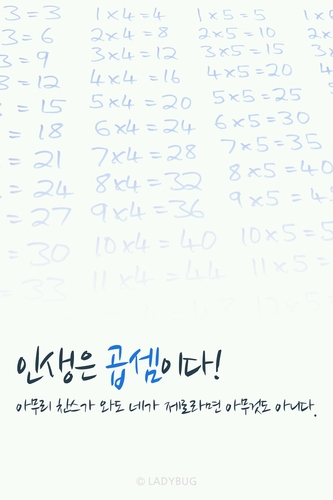 3 = 3 1 x 4 = 4 1 x 5 = 5 1 x
3 = 6 2 x 4 = 8 2 x 5 = 10 2 x
3 = 9 3 x 4 = 12 3 x 5 = 15 3
3 = 12 4 x 4 = 16 4 x 5 = 20 4
= 15 5 x 4 = 20 5 x 5 = 25 5
= 18 6 x 4 = 24 6 x 5 = 30
= 21 7 x 4 = 28 7 x 5 = 35
= 24 8 x 4 = 32 8 x 5 = 40
= 27 9 x 4 = 36 9 x 5 = 4
= 30 10 x 4 = 40 10 x 5 = 5
= 33 11 x 4 = 44 11 x 5 =
인생은 곱셈이다!
아무리 찬스가 와도 네가 제로라면 아무것도 아니다.
© LADYBUG